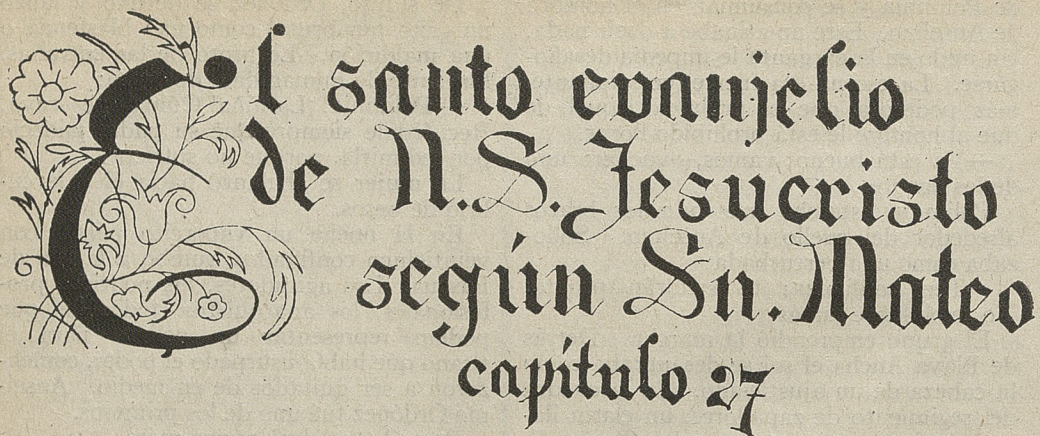 El santo evanjelio
de N.S. Jesucristo
según Sn. Mateo
capítulo 27